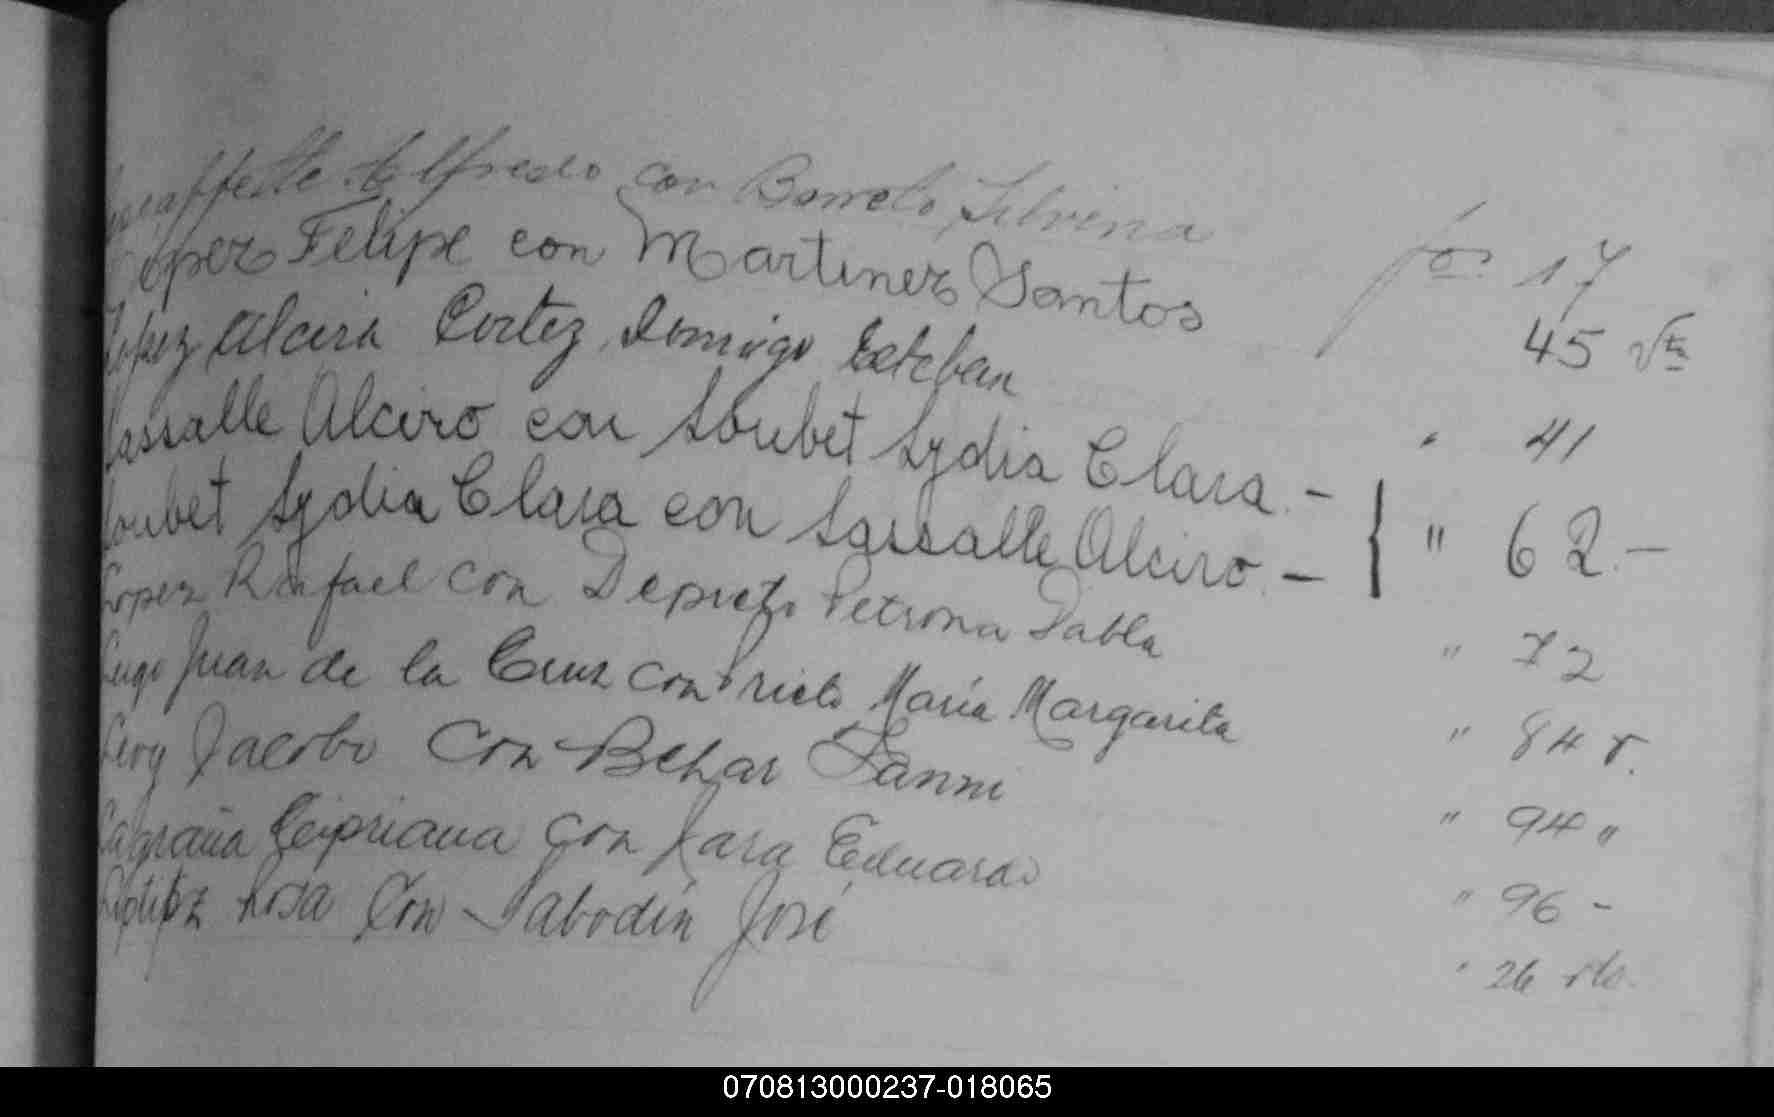 Alfredo con Borreto Silvina fos 17
Lopez Felipe con Martinez Santos 45 vta
Lopez Alcira Cortez Domingo Esteban " 41
Lassalle Alciro con Loubet Lydia Clara. - } " 62.-
Loubet Lydia Clara con Lassalle Alciro. -
Lopez Rafael con Petrona Pabla " 72
Lugo Juan de la Cruz con Prieto María Margarita " 84 v.
Levy Jacobo Con Behar Fanni " 94 "
Lagraña Cipriana con Jara Eduardo " 96 -
Rosa Con Sabodin José " 26
070813000237-018065